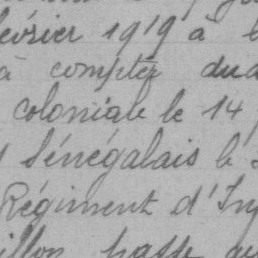 février 1919 à
à compter du
coloniale le 14
Sénégalais le
Régiment d'In
illon passé au